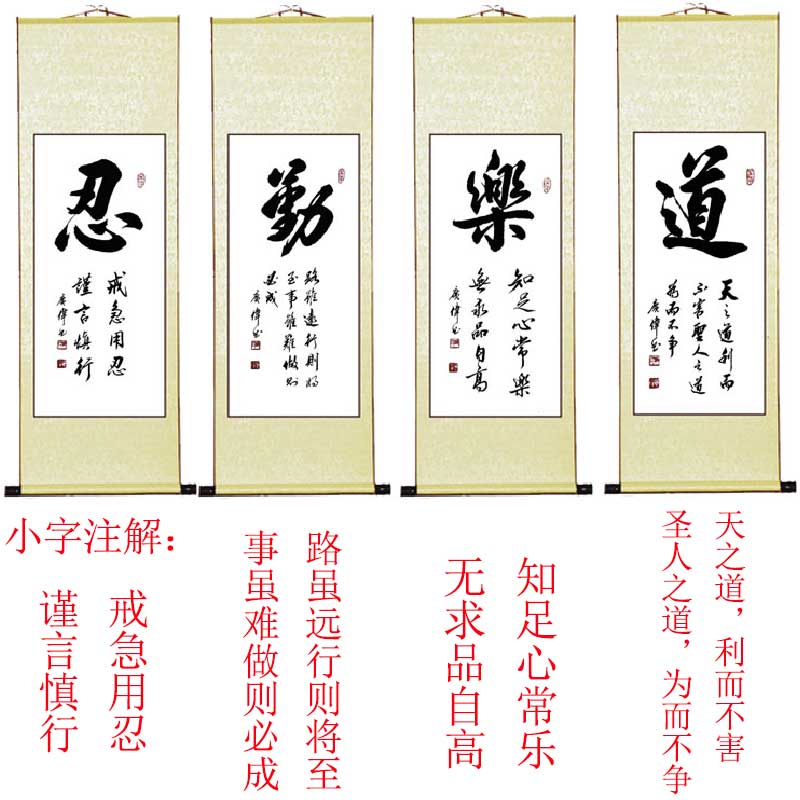 忍
戒急用忍
謹言慎行
廣偉书
勤
路雖遠行則將
至事雖難做則
必成
廣偉书
樂
知足心常樂
無求品自高
廣偉书
道
天之道利而
不害聖人之道
為而不争
廣偉书
小字注解：
戒急用忍
谨言慎行
路虽远行则将至
事虽难做则必成
知足心常乐
无求品自高
天之道，利而不害
圣人之道，为而不争